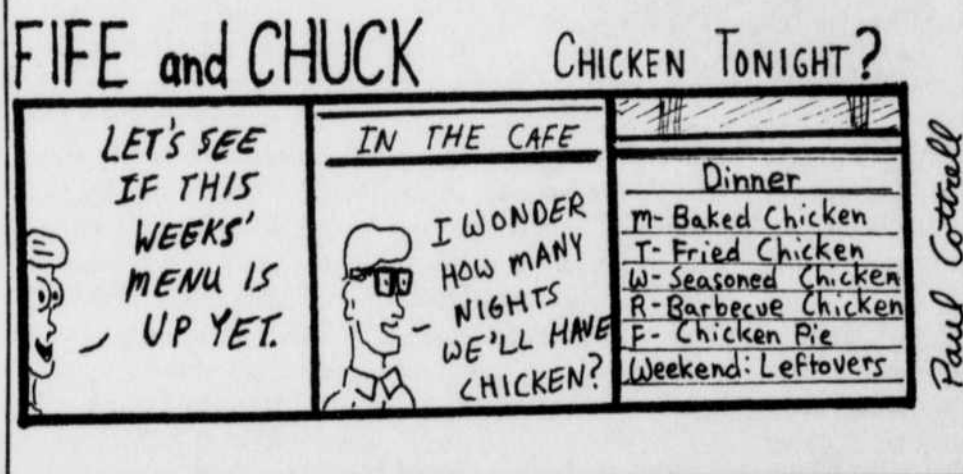 FIFE and CHUCK
CHICKEN TONIGHT?
LET'S SEE
IF THIS
WEEKS'
MENU IS
UP YET.
IN THE CAFE
I WONDER
HOW MANY
NIGHTS
WE'LL HAVE
CHICKEN?
Dinner
M- Baked Chicken
T- Fried Chicken
W- Seasoned Chicken
R- Barbecue Chicken
F- Chicken Pie
Weekend: Leftovers
Paul Cottrell